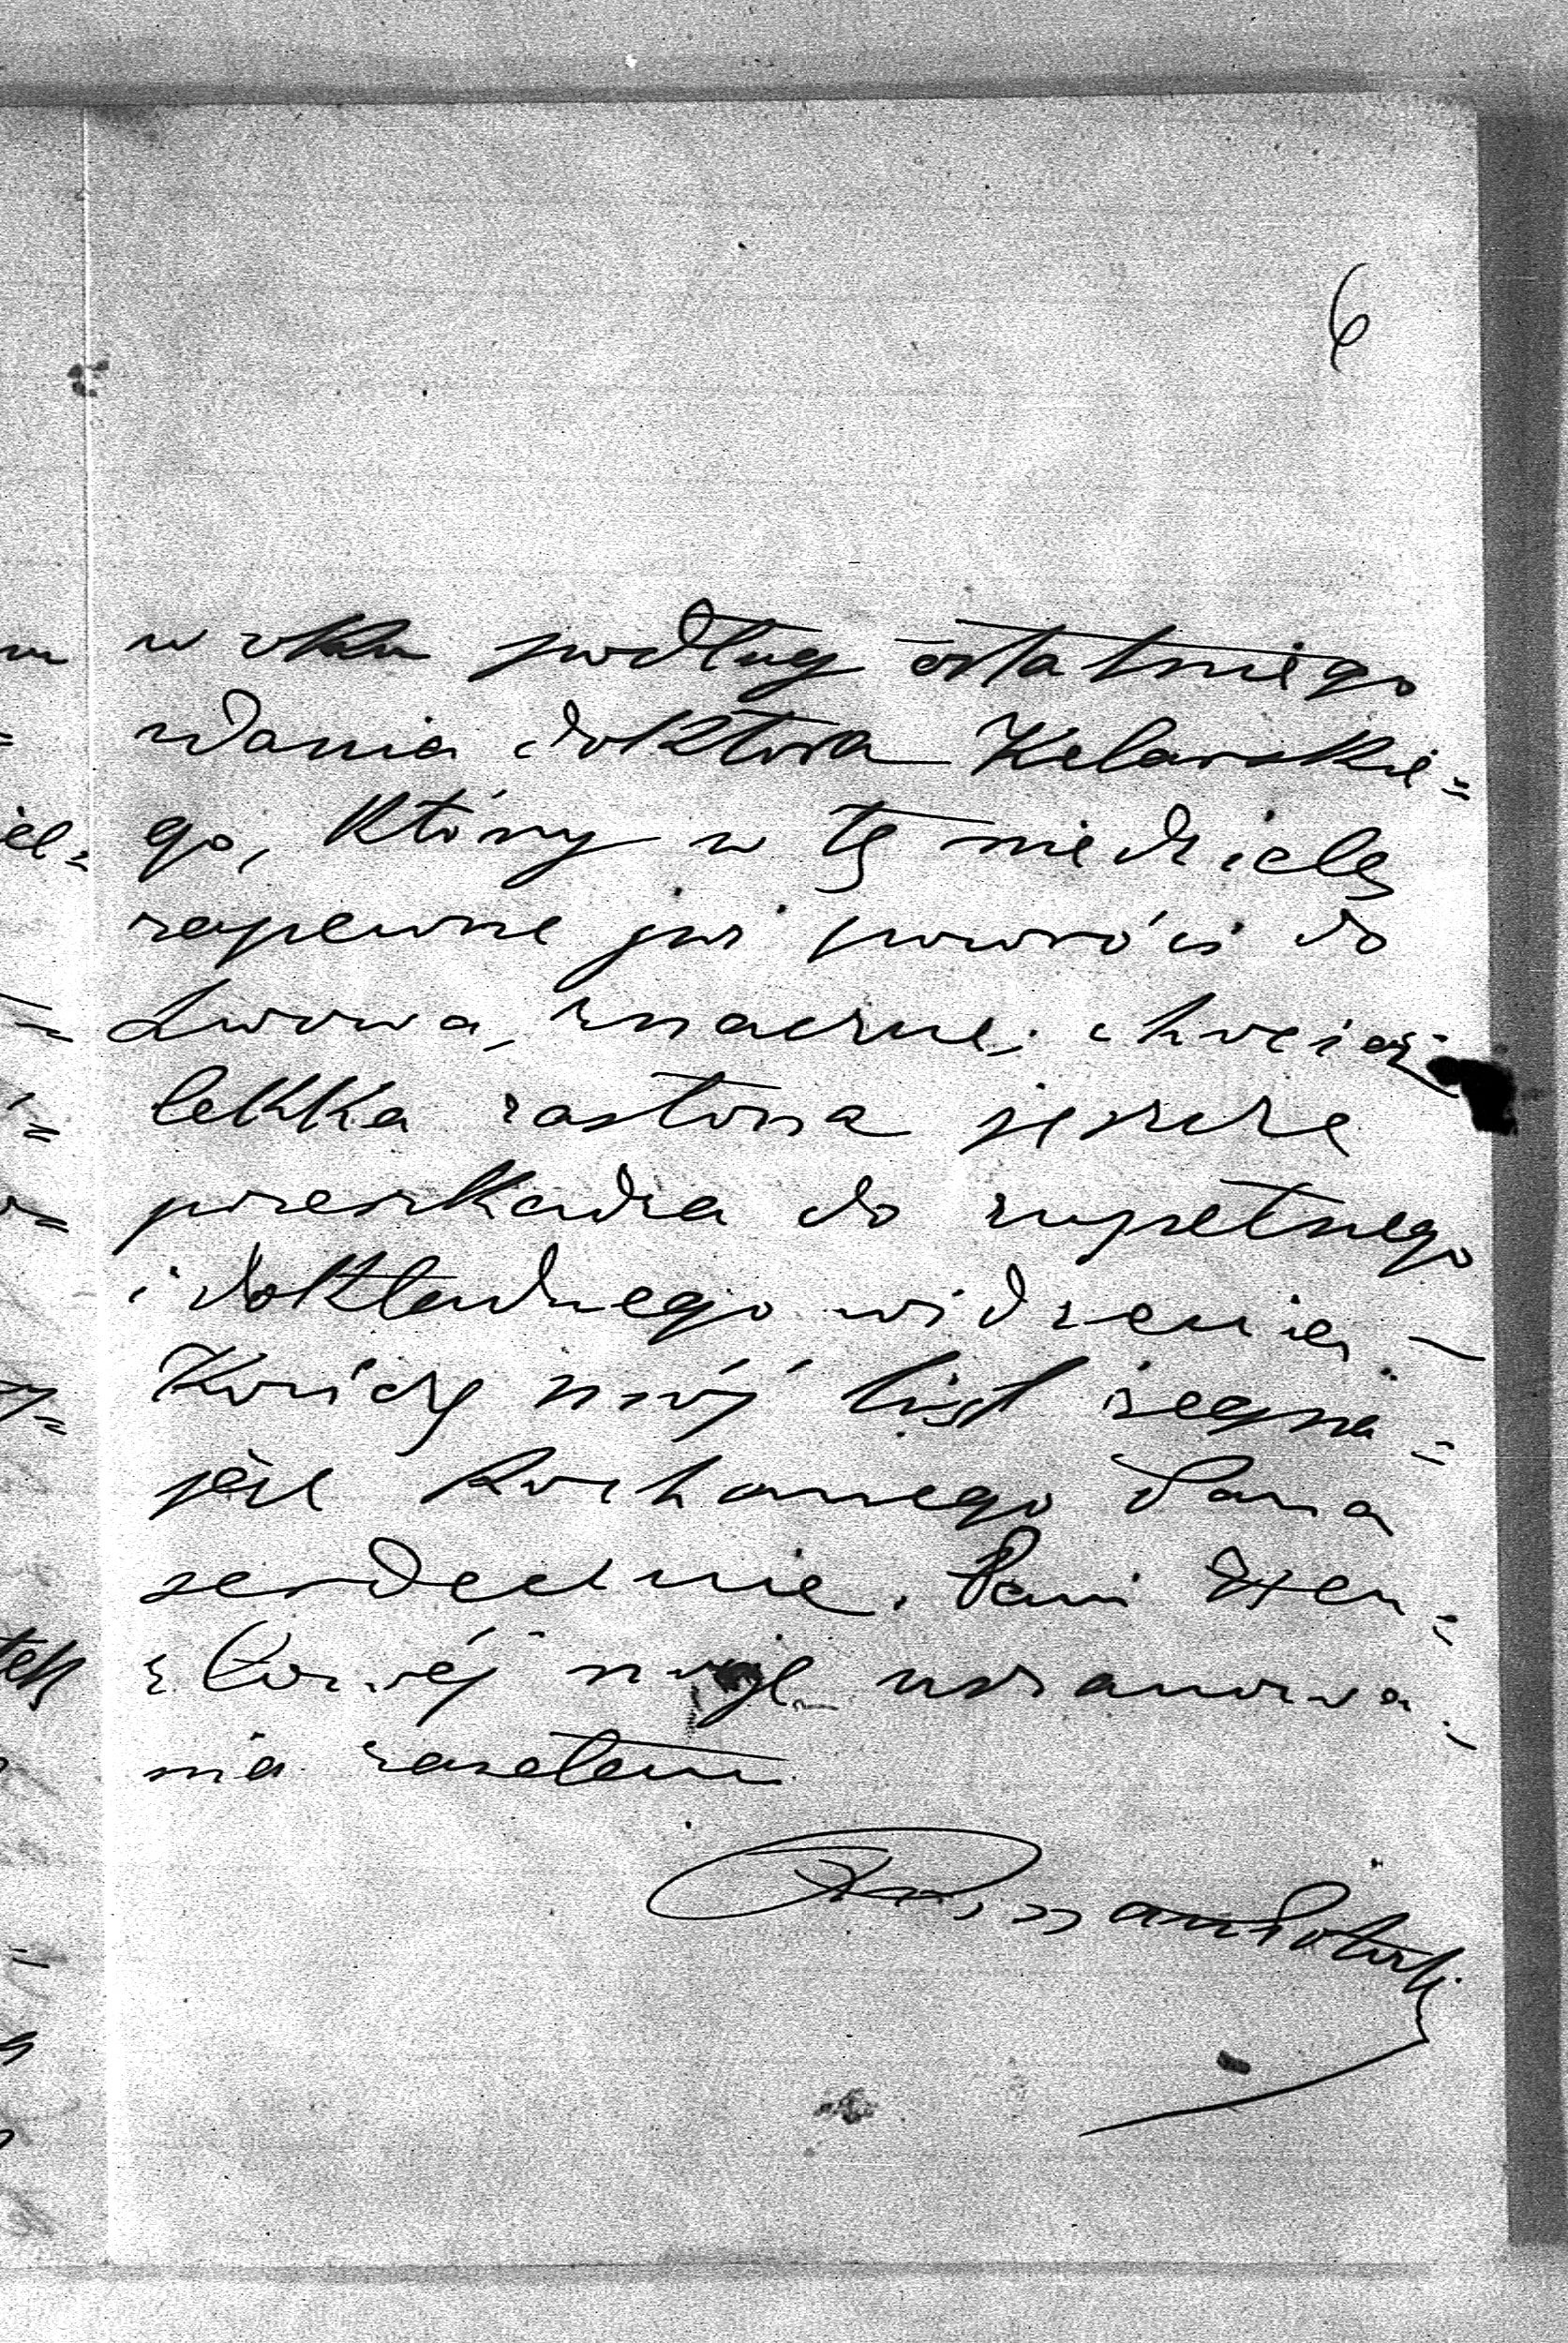 6
w oku podług ostatniego
zdania doktora Kelarskie=
go, który w tę niedzielę
zapewne już powróci do
Lwowa, znaczne, chociaż
lekka zasłona jeszcze
przeszkadza do zupełnego
i dokładnego widzenia. —
Kończę mój list żegna=
jąc kochanego Pana
serdecznie. Pani
moje uszanowa=
nia zasełam